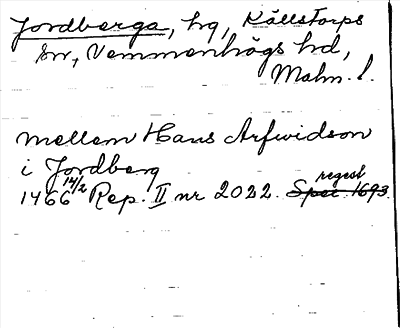 Jordberga, hg, Källstorps
sn, Vemmenhögs hd,
Malm. l.
mellem Hans Arfwidson
i Jordberg
1466 14/2 Rep. II nr 2022. Spec. regest 1693.